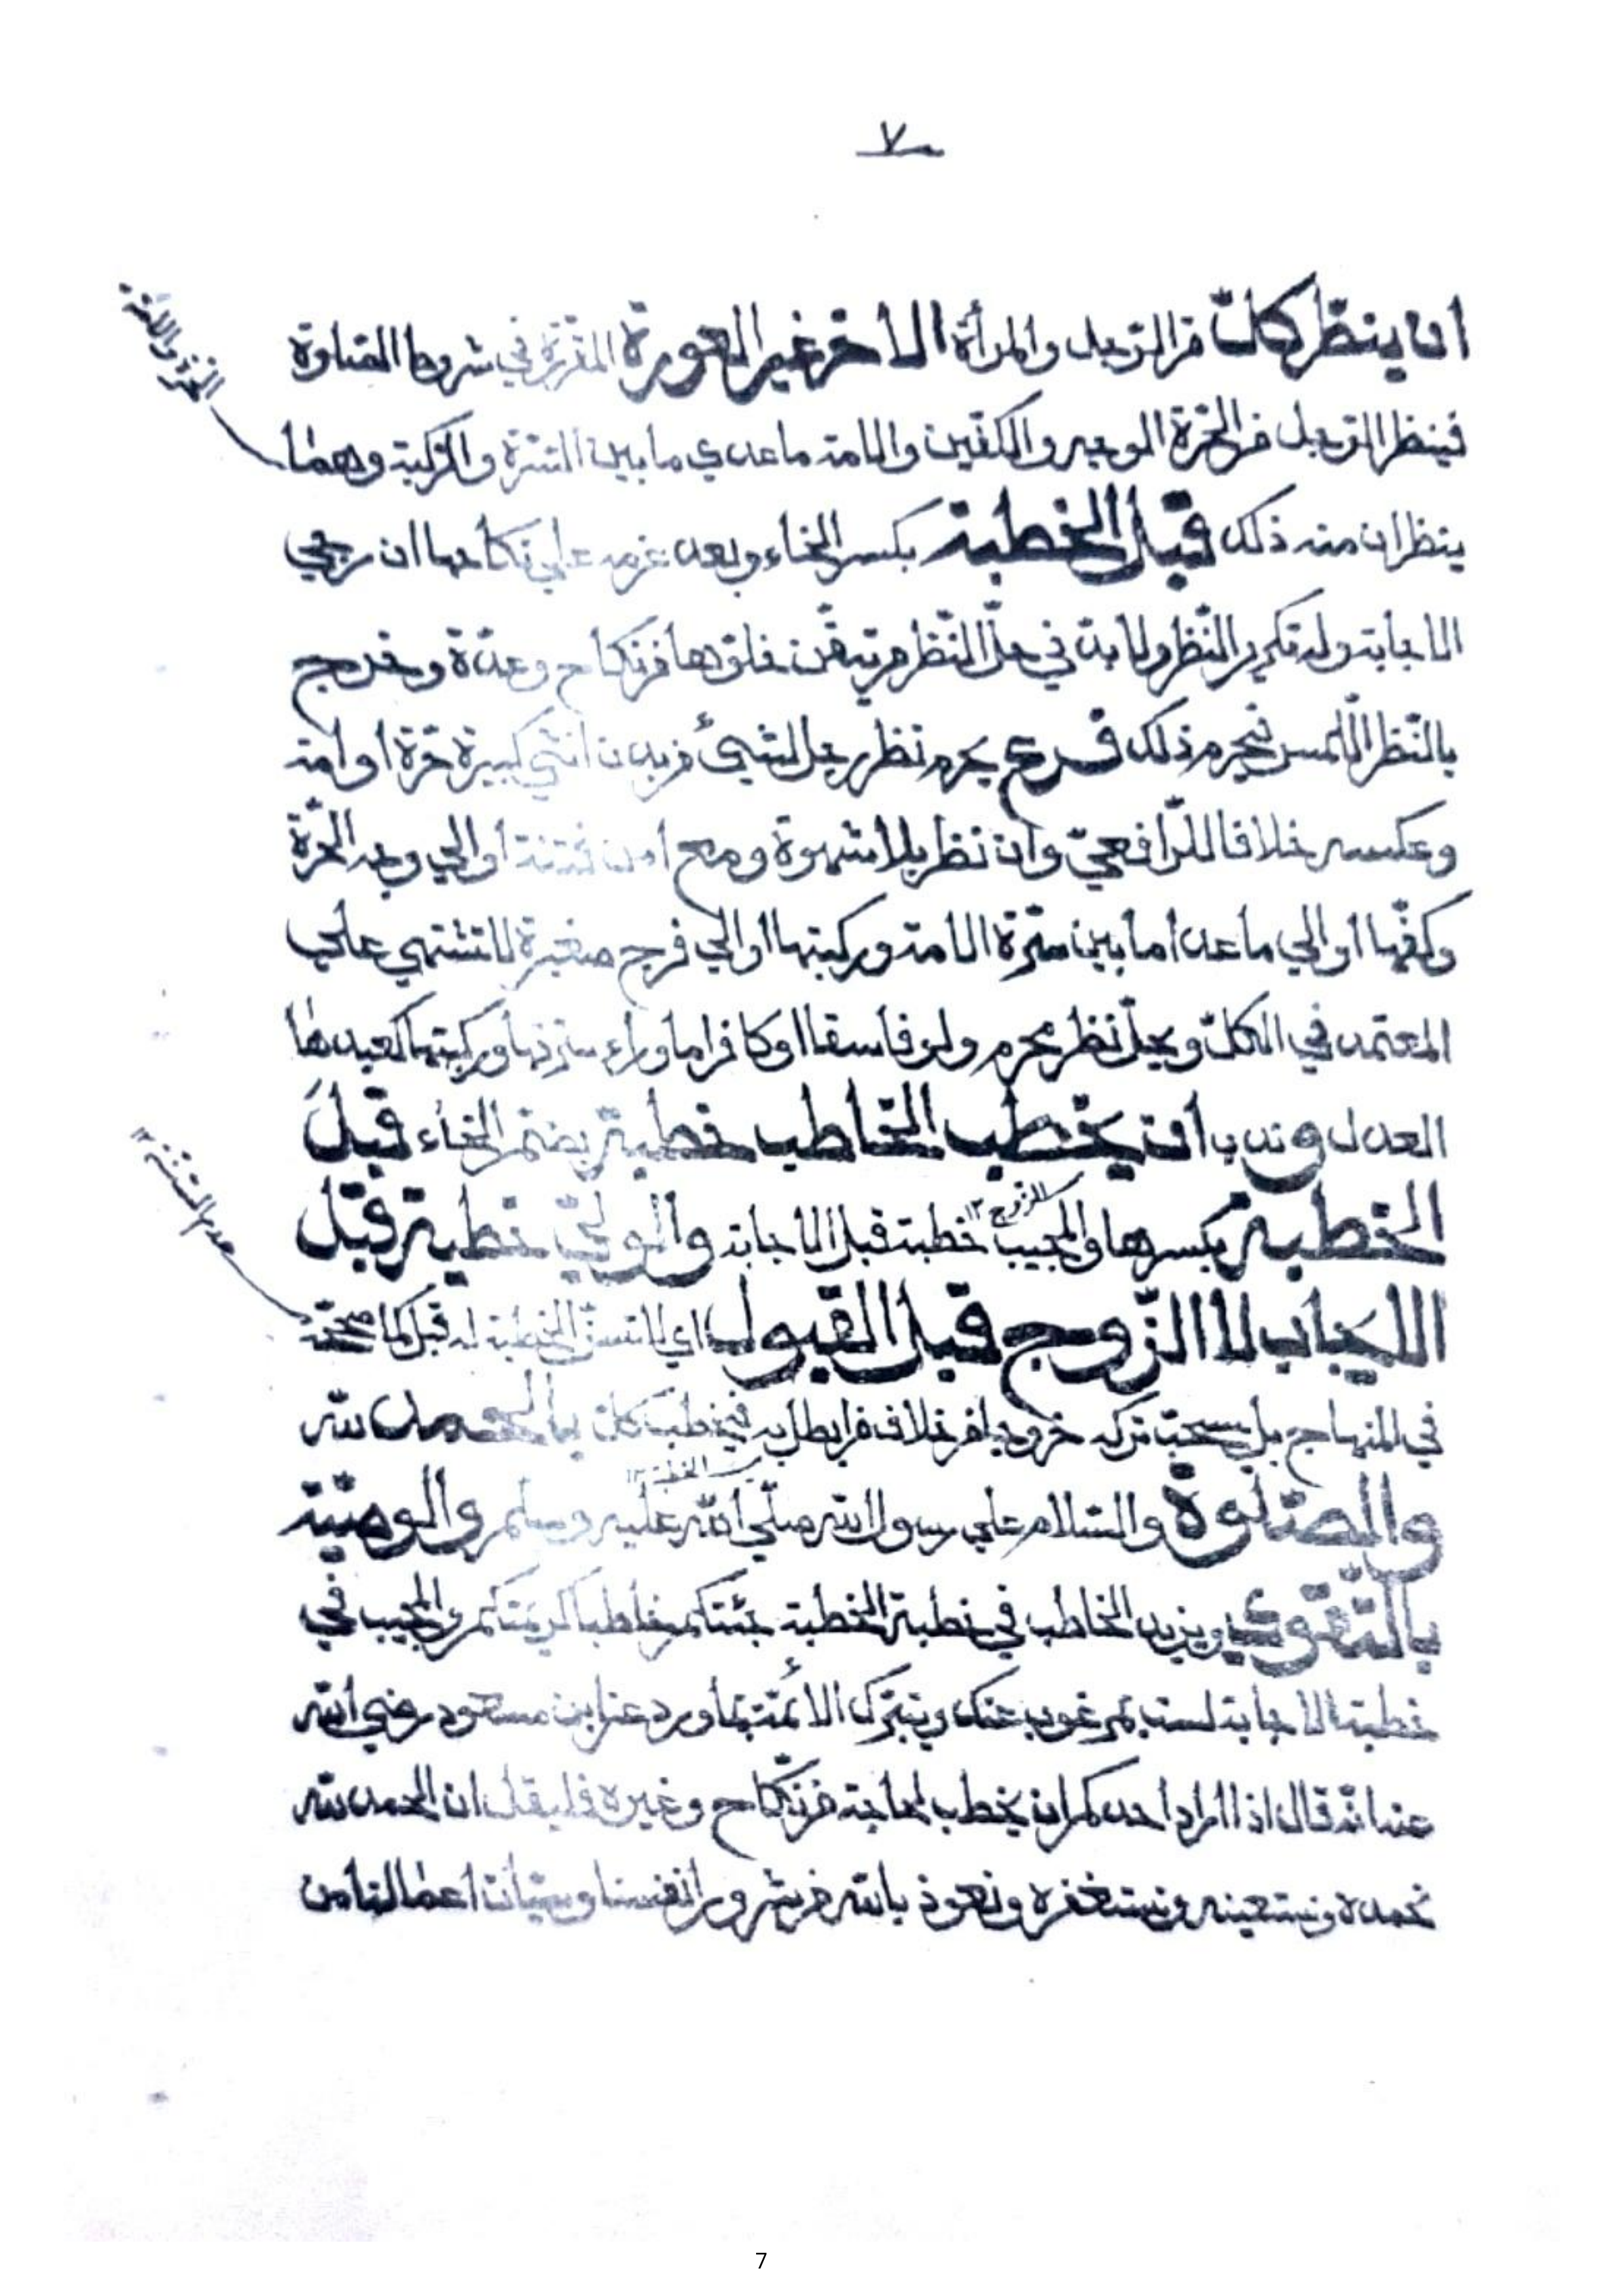 ٧
ان ينظر كلّ من الرّجل والمرأة الاخر غير العورة المقرّرة في شروط الصّلوة
فينظر الرّجل من الحرّة الوجه والكفّين والامة ماعدى ما بين السّرّة والرّكبة وهما
الحرّة والامة
ينظران منه ذلك قبل الخطبة بكسر الخاء وبعد عزمه على نكاحها ان رجي
الاجابة وله تكرير النّظر ولا بدّ في حلّ النّظر من تيقّن خلوّها من نكاح وعدّة وخرج
بالنّظر اللّمس فيحرم ذلك فرع يحرم نظر رجل لشيئ من بدن انثى كبيرة حرّة او امة
وعكسه خلافا للرّافعيّ وان نظر بلا شهوة ومع امن فتنة او الى وجه الحرّة
وكفّها او الى ماعدا ما بين سرّة الامة وركبتها او الى فرج صغيرة لا تشتهي على
المعتمد في الكلّ ويحلّ نظر محرم ولو فاسقا او كافرا ما وراء سرّتها وركبتها كعبدها
العدل وندب ان يخطب الخاطب خطبة بضمّ الخاء قبل
الخطبة بكسرها والمجيب خطبة قبل الاجابة والوليّ خطبة قبل
الايجاب لا الزّوج قبل القبول اي لا تسنّ الخطبة له قبل كما صحّحه
عدم السّنّيّة ١٢
في المنهاج بل يستحبّ تركه خروجا من خلاف من ابطل به فيخطب كلّ بالحمد لله
والصّلوة والسّلام على رسول الله صلّى الله عليه وسلّم والوصيّة
بالتّقوى ويزيد الخاطب في خطبة الخطبة جئتكم خاطبا كريمتكم والمجيب في
خطبة الاجابة لست بمرغوب عنك وتبرّك الائمّة بما ورد عن ابن مسعود رضي الله
عنه انّه قال اذا اراد احدكم ان يخطب لحاجة من نّكاح وغيره فليقل ان الحمد لله
نحمده ونستعينه ونستغفره ونعوذ بالله من شرور انفسنا وسيّئات اعمالنا من
7